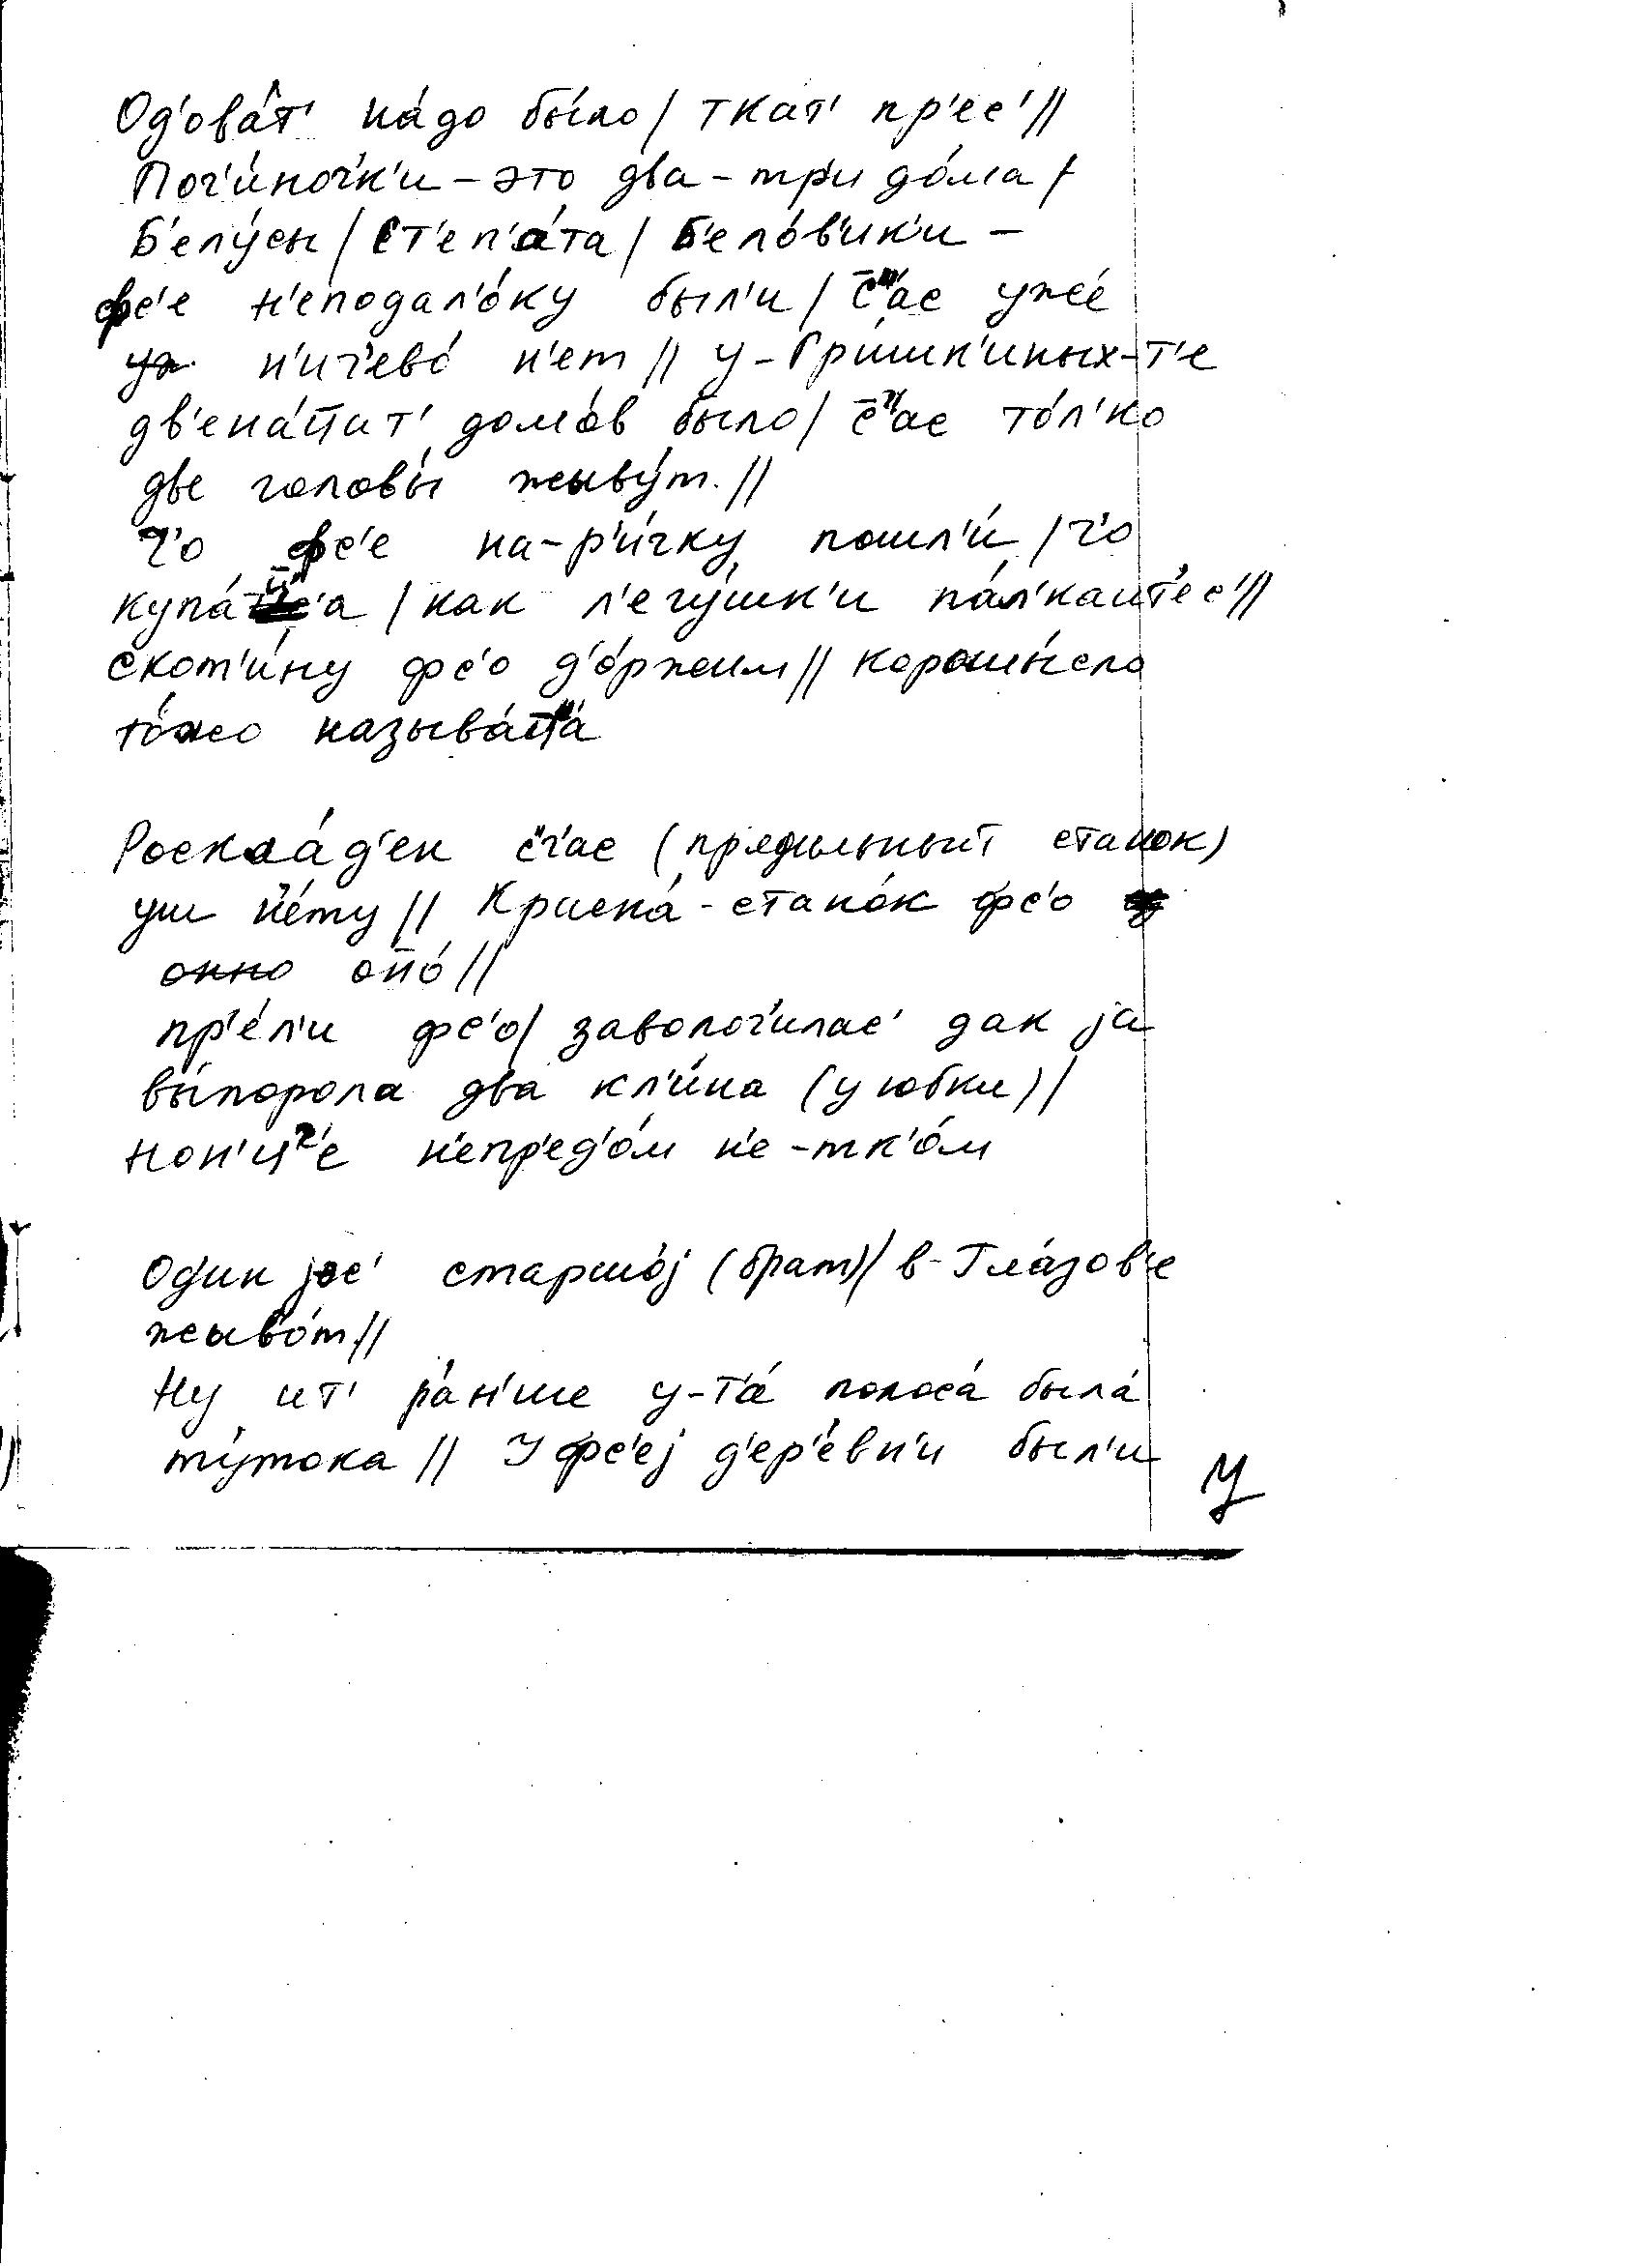 Од'ова́т' на́до бы́ло / ткат' пр'ес' //
Поч'и́ноч'к'и – это два – три до́ма /
Б'елу́сы / Ст'еп'а́та / Б'ело́в'ик'и –
фс'е н'еподал'о́ку был'и / с̄'ас уже́
н'ич'ево́ н'ет // у – Гри́шк'иных – т'е
дв'ена́ц̄ат' домо́в было / с̄'ас то́л'ко
две головы́ жыву́т //
Ч'о фс'е на – р'и́чку пошл'и́ / ч'о
купа́ц̄а / как л'егу́шк'и па́л'каит'ес' //
Скот'и́ну фс'о д'о́ржим // коромы́сло
то́жо называ́
Роскла́д'ен с'ч'ас (прядильный станок)
уш н'е́ту // Кросна́ – стано́к фс'о
оно́ //
пр'е́л'и фс'о / заволоч'илас' дак jа
вы́порола два кл'и́на (у юбки) /
нон'ц'е н'епр'ед'о́м н'е – тк'о́м
Один jес' старшо́j (брат) / в – Гла́зов'е
жыв'о́т //
Ну ит' ра́н'ше у – т'а́ полоса́ была́
ту́тока // У фс'еj д'ер'е́вн'и был'и